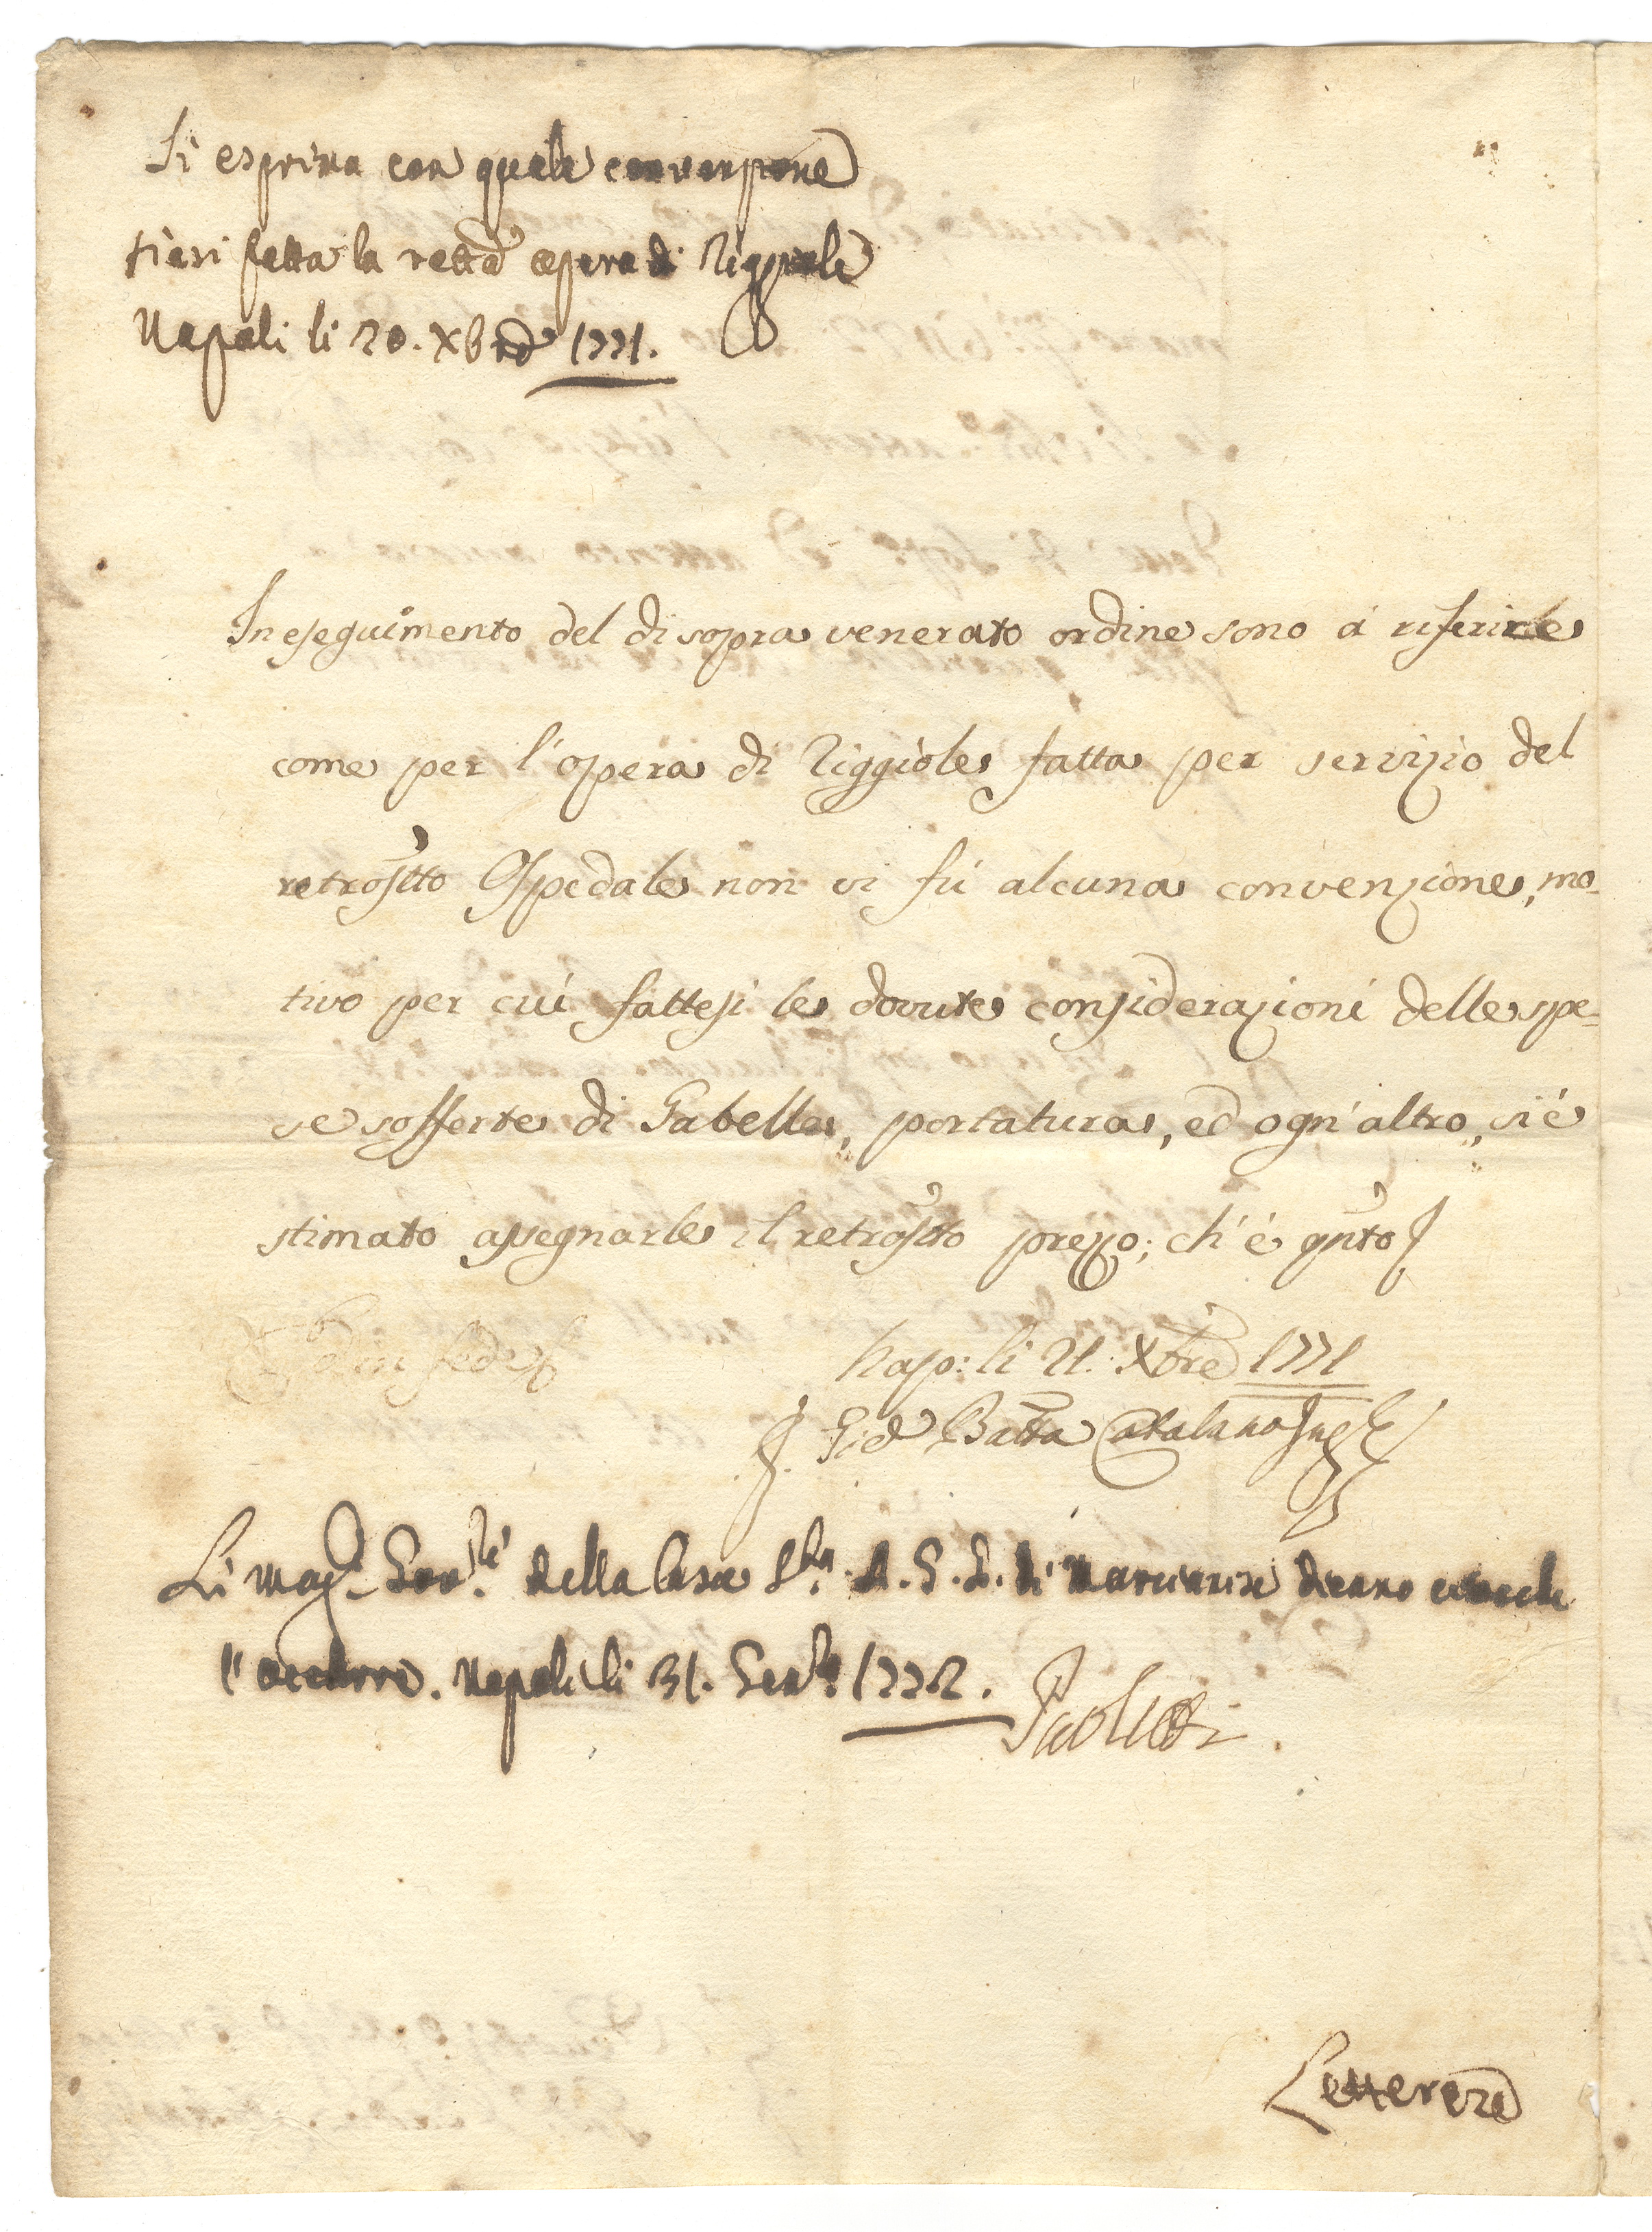 Si esprima con quale convenzione
siesi fatta la retta opera di Riggiole
Napoli li 20. Xbre 1771.
In eseguimento del di sopra venerato ordine sono à riferirle
come per l'opera di Riggiole fatta per servizio del
retrostto Ospedale non vi fù alcuna convenzione, mo-
tivo per cui fattesi le dovute considerazioni delle spe-
se sofferte di Gabella, portatura, ed ogn'altro, si è
stimato assegnarle il retrostto prezzo; ch'è qnto
Ed in fede
Nap: li 21. Xbre 1771
Gio Batta Catalano Ing
Li Magci Govri della Casa Sta A. G. P. di Marcianise dicano
l'occorre. Napoli li 31. Genro 1772.